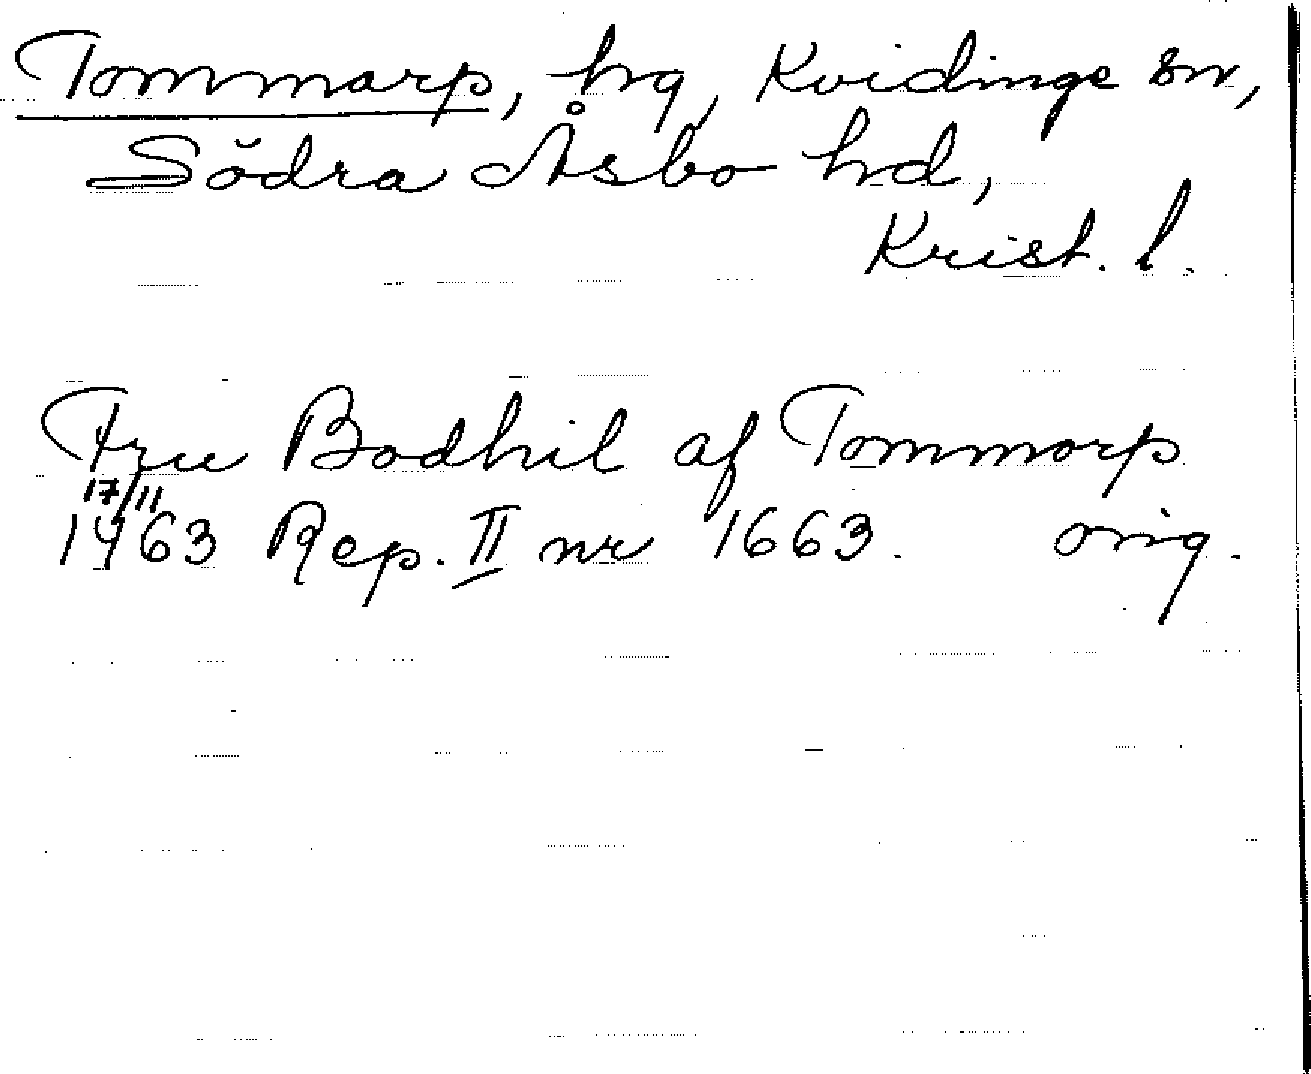 Tommarp, hg, Kvidinge sn,
Södra Åsbo hd,
Krist. l.
Fru Bodhil af Tommorp
17/11
1463 Rep. II nr 1663. orig.